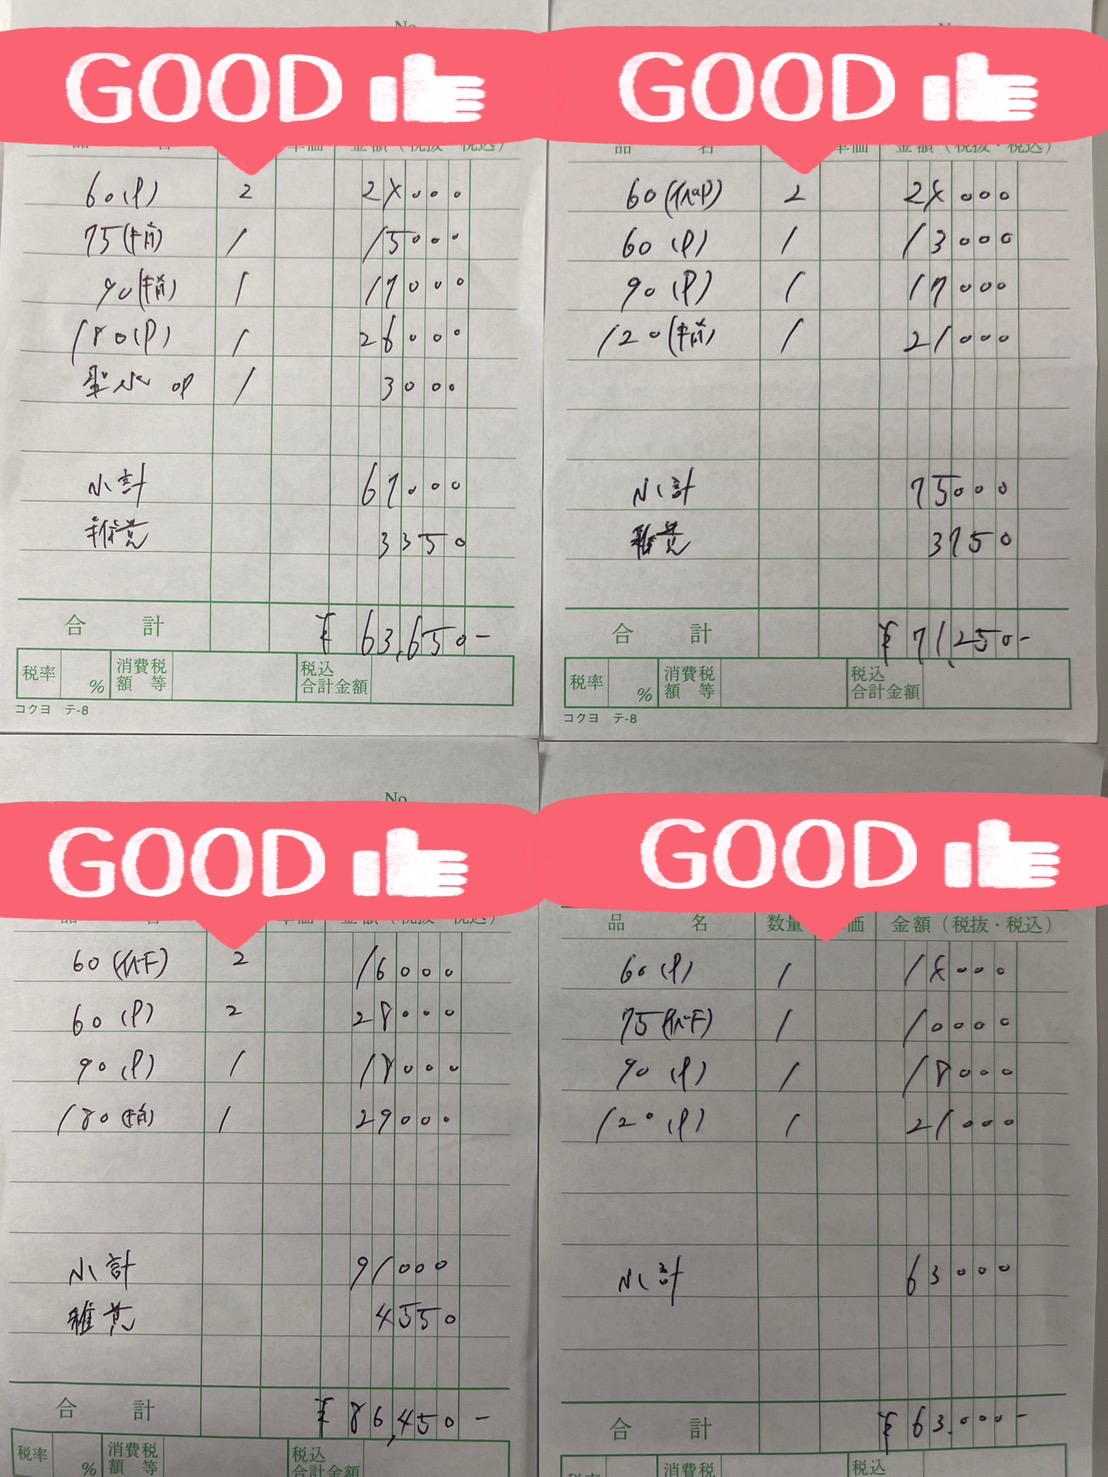 No.
GOOD
金額（税抜・税込）
60(P) 2 2X000
75(指) 1 15000
90(指) 1 17000
180(P) 1 26000
聖水 OP 1 3000
小計 67000
雑費 3350
合計 ¥63,650-
税率 % 消費税額等 税込合計金額
コクヨ テ-8
GOOD
品名 単価 金額（税抜・税込）
60 2 2X000
60(P) 1 13000
90(P) 1 17000
120(指) 1 21000
小計 75000
雑費 3750
合計 ¥71,250-
税率 % 消費税額等 税込合計金額
コクヨ テ-8
No.
GOOD
60 2 16000
60(P) 2 28000
90(P) 1 18000
180(指) 1 29000
小計 91000
雑費 4550
合計 ¥86,450-
税率 % 消費税額等 税込合計金額
GOOD
品名 数量 単価 金額（税抜・税込）
60(P) 1 1X000
75 1 10000
90(P) 1 18000
120(P) 1 21000
小計 63000
合計 ¥63,000-
税率 消費税 税込